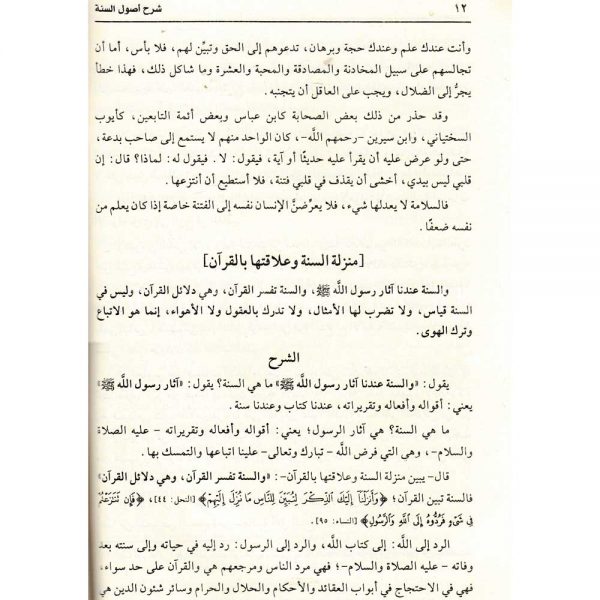 ١٢
شرح أصول السنة
وأنت عندك علم وعندك حجة وبرهان، تدعوهم إلى الحق وتبيِّن لهم، فلا بأس، أما أن
تجالسهم على سبيل المخادنة والمصادقة والمحبة والعشرة وما شاكل ذلك، فهذا خطأ
يجرُّ إلى الضلال، ويجب على العاقل أن يتجنبه.
وقد حذر من ذلك بعض الصحابة كابن عباس وبعض أئمة التابعين، كأيوب
السختياني، وابن سيرين -رحمهم اللَّه-، كان الواحد منهم لا يستمع إلى صاحب بدعة،
حتى ولو عرض عليه أن يقرأ عليه حديثًا أو آية، فيقول: لا. فيقول له: لماذا؟ قال: إن
قلبي ليس بيدي، أخشى أن يقذف في قلبي فتنة، فلا أستطيع أن أنتزعها.
فالسلامة لا يعدلها شيء، فلا يعرِّضنَّ الإنسان نفسه إلى الفتنة خاصة إذا كان يعلم من
نفسه ضعفًا.
[منزلة السنة وعلاقتها بالقرآن]
والسنة عندنا آثار رسول اللَّه ﷺ، والسنة تفسر القرآن، وهي دلائل القرآن، وليس في
السنة قياس، ولا تضرب لها الأمثال، ولا تدرك بالعقول ولا الأهواء، إنما هو الاتباع
وترك الهوى.
الشرح
يقول: «والسنة عندنا آثار رسول اللَّه ﷺ» ما هي السنة؟ يقول: «آثار رسول اللَّه ﷺ»
يعني: أقواله وأفعاله وتقريراته، عندنا كتاب وعندنا سنة.
ما هي السنة؟ هي آثار الرسول؛ يعني: أقواله وأفعاله وتقريراته - عليه الصلاة
والسلام-، وهي التي فرض اللَّه - تبارك وتعالى- علينا اتباعها والتمسك بها.
قال- يبين منزلة السنة وعلاقتها بالقرآن-: «والسنة تفسر القرآن، وهي دلائل القرآن»
فالسنة تبين القرآن؛ ﴿وَأَنزَلْنَا إِلَيْكَ الذِّكْرَ لِتُبَيِّنَ لِلنَّاسِ مَا نُزِّلَ إِلَيْهِمْ﴾ [النحل: ٤٤]، ﴿فَإِن تَنَازَعْتُمْ
فِي شَيْءٍ فَرُدُّوهُ إِلَى اللَّهِ وَالرَّسُولِ﴾ [النساء: ٥٩].
الرد إلى اللَّه: إلى كتاب اللَّه، والرد إلى الرسول: رد إليه في حياته وإلى سنته بعد
وفاته - عليه الصلاة والسلام-؛ فهي مرد الناس ومرجعهم هي والقرآن على حد سواء،
فهي في الاحتجاج في أبواب العقائد والأحكام والحلال والحرام وسائر شئون الدين هي